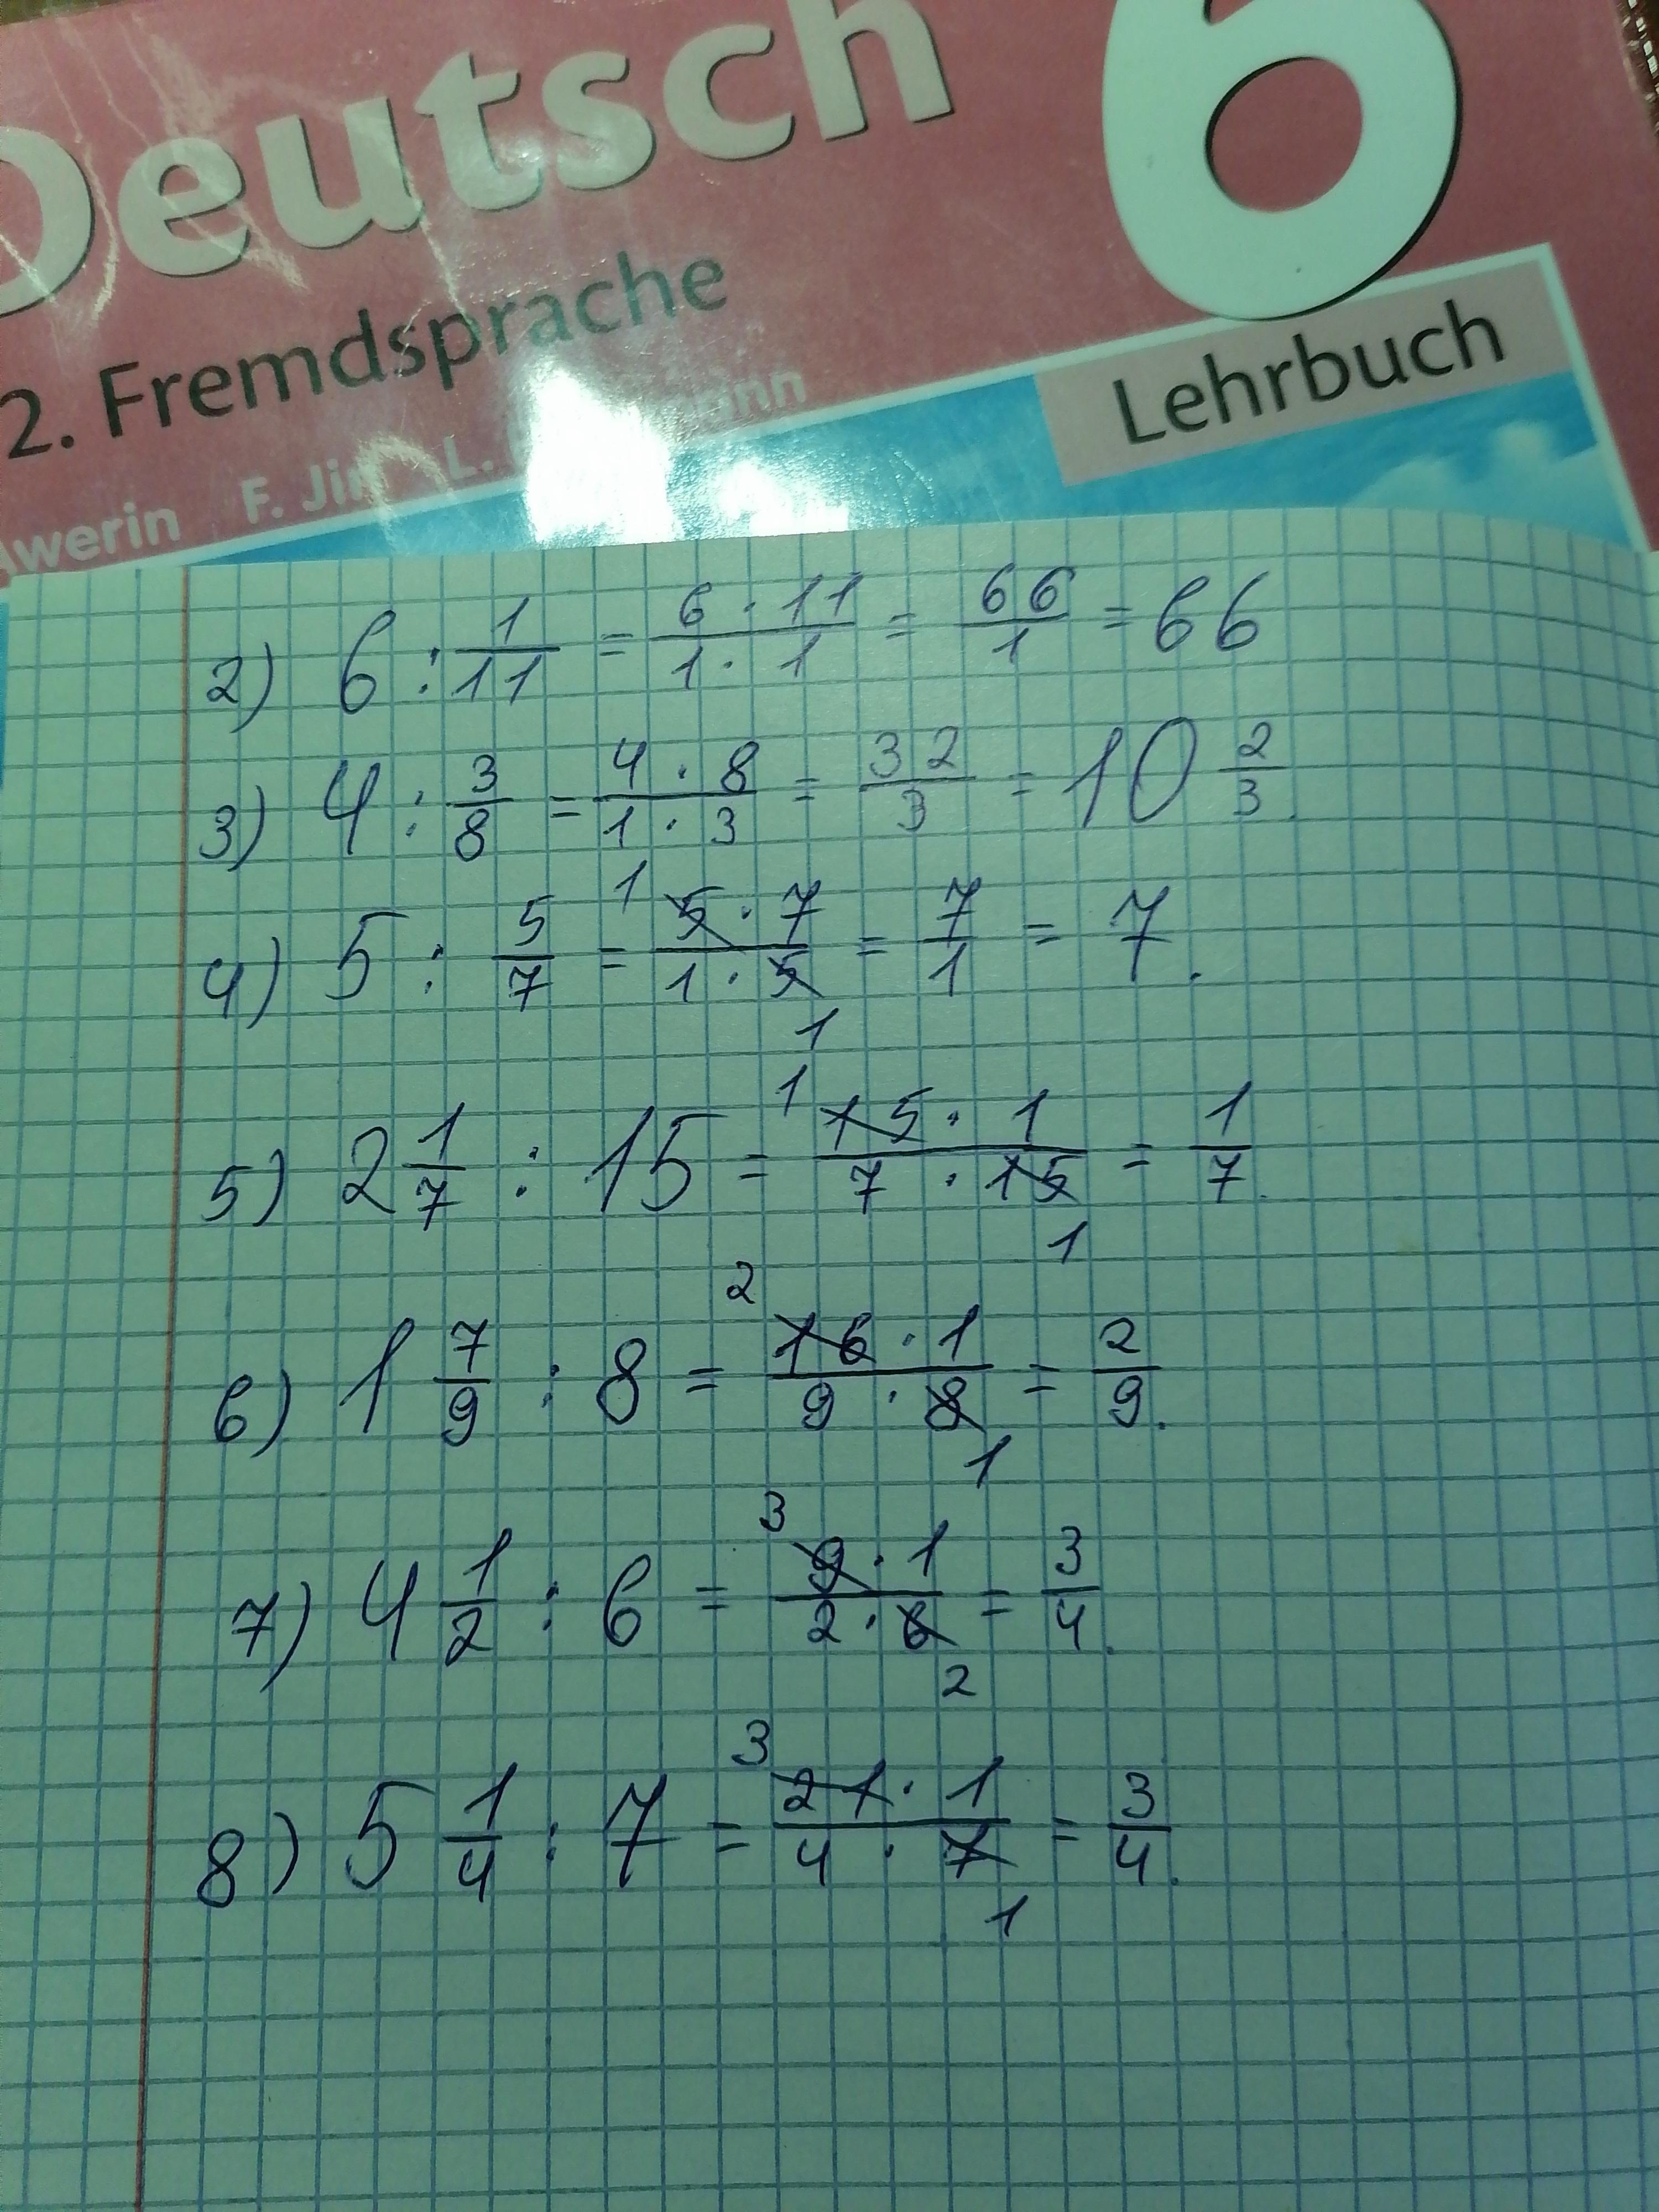 Deutsch 6
2. Fremdsprache
Lehrbuch
Awerin F. L.
2) 6 : 1/11 = 6 · 11/1 · 1 = 66/1 = 66
3) 4 : 3/8 = 4 · 8/1 · 3 = 32/3 = 10 2/3.
4) 5 : 5/7 = 1 5 · 7/1 · 5 1 = 7/1 = 7.
5) 2 1/7 : 15 = 1 15 · 1/7 · 15 1 = 1/7.
6) 1 7/9 : 8 = 2 16 · 1/9 · 8 1 = 2/9.
7) 4 1/2 : 6 = 3 9 · 1/2 · 6 2 = 3/4.
8) 5 1/4 : 7 = 3 21 · 1/4 · 7 1 = 3/4.